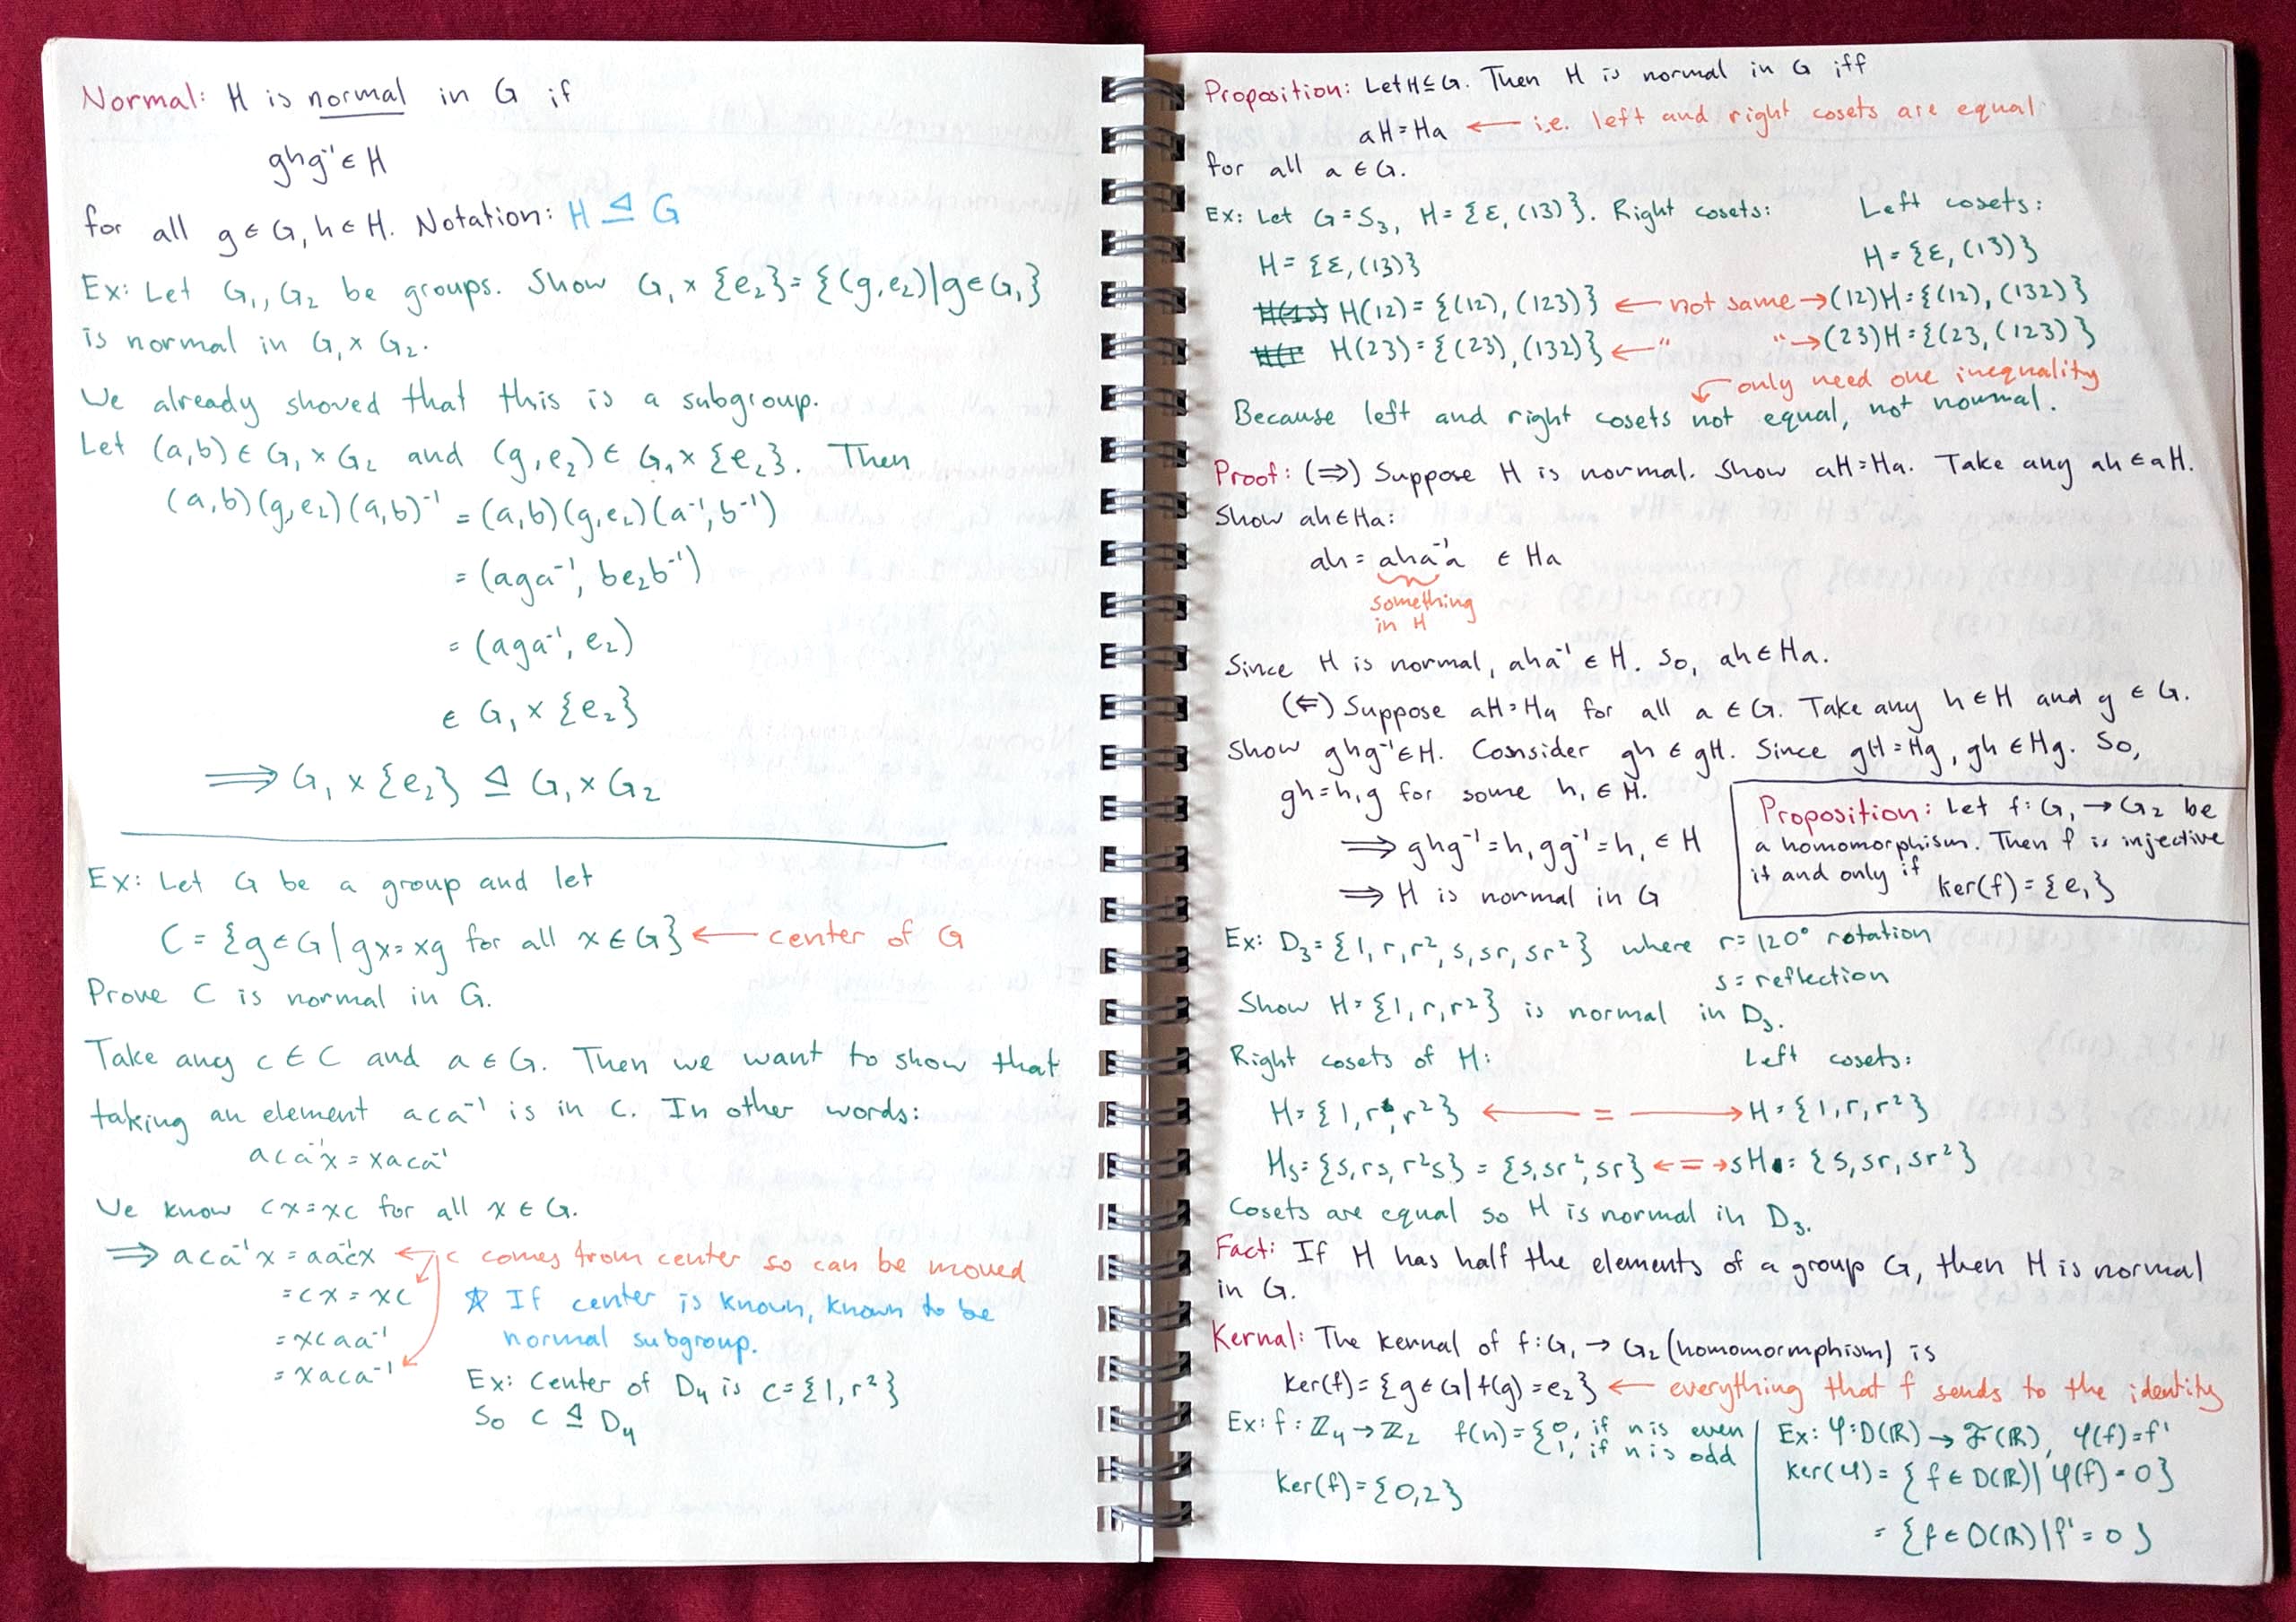 Normal: H is normal in G if
ghg⁻¹ ∈ H
for all g ∈ G, h ∈ H. Notation: H ⊴ G
Ex: Let G₁, G₂ be groups. Show G₁ × {e₂} = {(g, e₂) | g ∈ G₁}
is normal in G₁ × G₂.
We already shoved that this is a subgroup.
Let (a,b) ∈ G₁ × G₂ and (g, e₂) ∈ G₁ × {e₂}. Then
(a,b)(g,e₂)(a,b)⁻¹ = (a,b)(g,e₂)(a⁻¹, b⁻¹)
= (aga⁻¹, be₂b⁻¹)
= (aga⁻¹, e₂)
∈ G₁ × {e₂}
⟹ G₁ × {e₂} ⊴ G₁ × G₂
Ex: Let G be a group and let
C = {g ∈ G | gx = xg for all x ∈ G} ← center of G
Prove C is normal in G.
Take any c ∈ C and a ∈ G. Then we want to show that
taking an element aca⁻¹ is in C. In other words:
aca⁻¹x = xaca⁻¹
We know cx = xc for all x ∈ G.
⟹ aca⁻¹x = aa⁻¹cx ← c comes from center so can be moved
= cx = xc
= xcaa⁻¹
= xaca⁻¹
☆ If center is known, known to be
normal subgroup.
Ex: Center of D₄ is C = {1, r²}
So C ⊴ D₄
Proposition: Let H ≤ G. Then H is normal in G iff
aH = Ha ← i.e. left and right cosets are equal
for all a ∈ G.
Ex: Let G = S₃, H = {ε, (13)}. Right cosets: Left cosets:
H = {ε, (13)} H = {ε, (13)}
H(12) = {(12), (123)} ← not same → (12)H = {(12), (132)}
H(23) = {(23), (132)} ← " " → (23)H = {(23, (123)}
only need one inequality
Because left and right cosets not equal, not normal.
Proof: (⇒) Suppose H is normal. Show aH = Ha. Take any ah ∈ aH.
Show ah ∈ Ha:
ah = aha⁻¹a ∈ Ha
something
in H
Since H is normal, aha⁻¹ ∈ H. So, ah ∈ Ha.
(⇐) Suppose aH = Ha for all a ∈ G. Take any h ∈ H and g ∈ G.
Show ghg⁻¹ ∈ H. Consider gh ∈ gH. Since gH = Hg, gh ∈ Hg. So,
gh = h₁g for some h₁ ∈ H.
⟹ ghg⁻¹ = h₁gg⁻¹ = h₁ ∈ H
⟹ H is normal in G
Proposition: Let f: G₁ → G₂ be
a homomorphism. Then f is injective
if and only if ker(f) = {e₁}
Ex: D₃ = {1, r, r², s, sr, sr²} where r = 120° rotation
s = reflection
Show H = {1, r, r²} is normal in D₃.
Right cosets of H: Left cosets:
H = {1, r, r²} ← = → H = {1, r, r²}
Hs = {s, rs, r²s} = {s, sr², sr} ← = → sH = {s, sr, sr²}
Cosets are equal so H is normal in D₃.
Fact: If H has half the elements of a group G, then H is normal
in G.
Kernal: The kernal of f: G₁ → G₂ (homomormphism) is
ker(f) = {g ∈ G | f(g) = e₂} ← everything that f sends to the identity
Ex: f: ℤ₄ → ℤ₂ f(n) = {0, if n is even
1, if n is odd
ker(f) = {0,2}
Ex: φ: D(ℝ) → F(ℝ), φ(f) = f'
ker(φ) = {f ∈ D(ℝ) | φ(f) = 0}
= {f ∈ D(ℝ) | f' = 0}